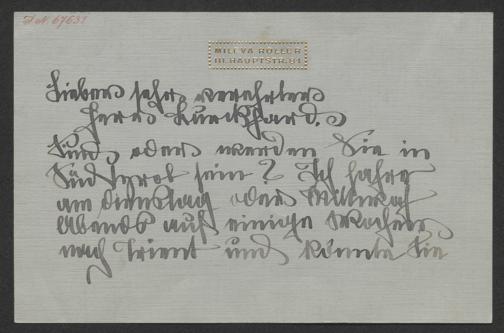 I. N. 67631
MILEVA ROLLER
III. HAUPTSTR. 81
Lieber sehr verehrter
Herr Burckhard.
Sind oder werden Sie in
Süd Tyrol sein? Ich fahre
am Dienstag oder Mittwoch
Abends auf einige Wochen
nach Trient und könnte Sie